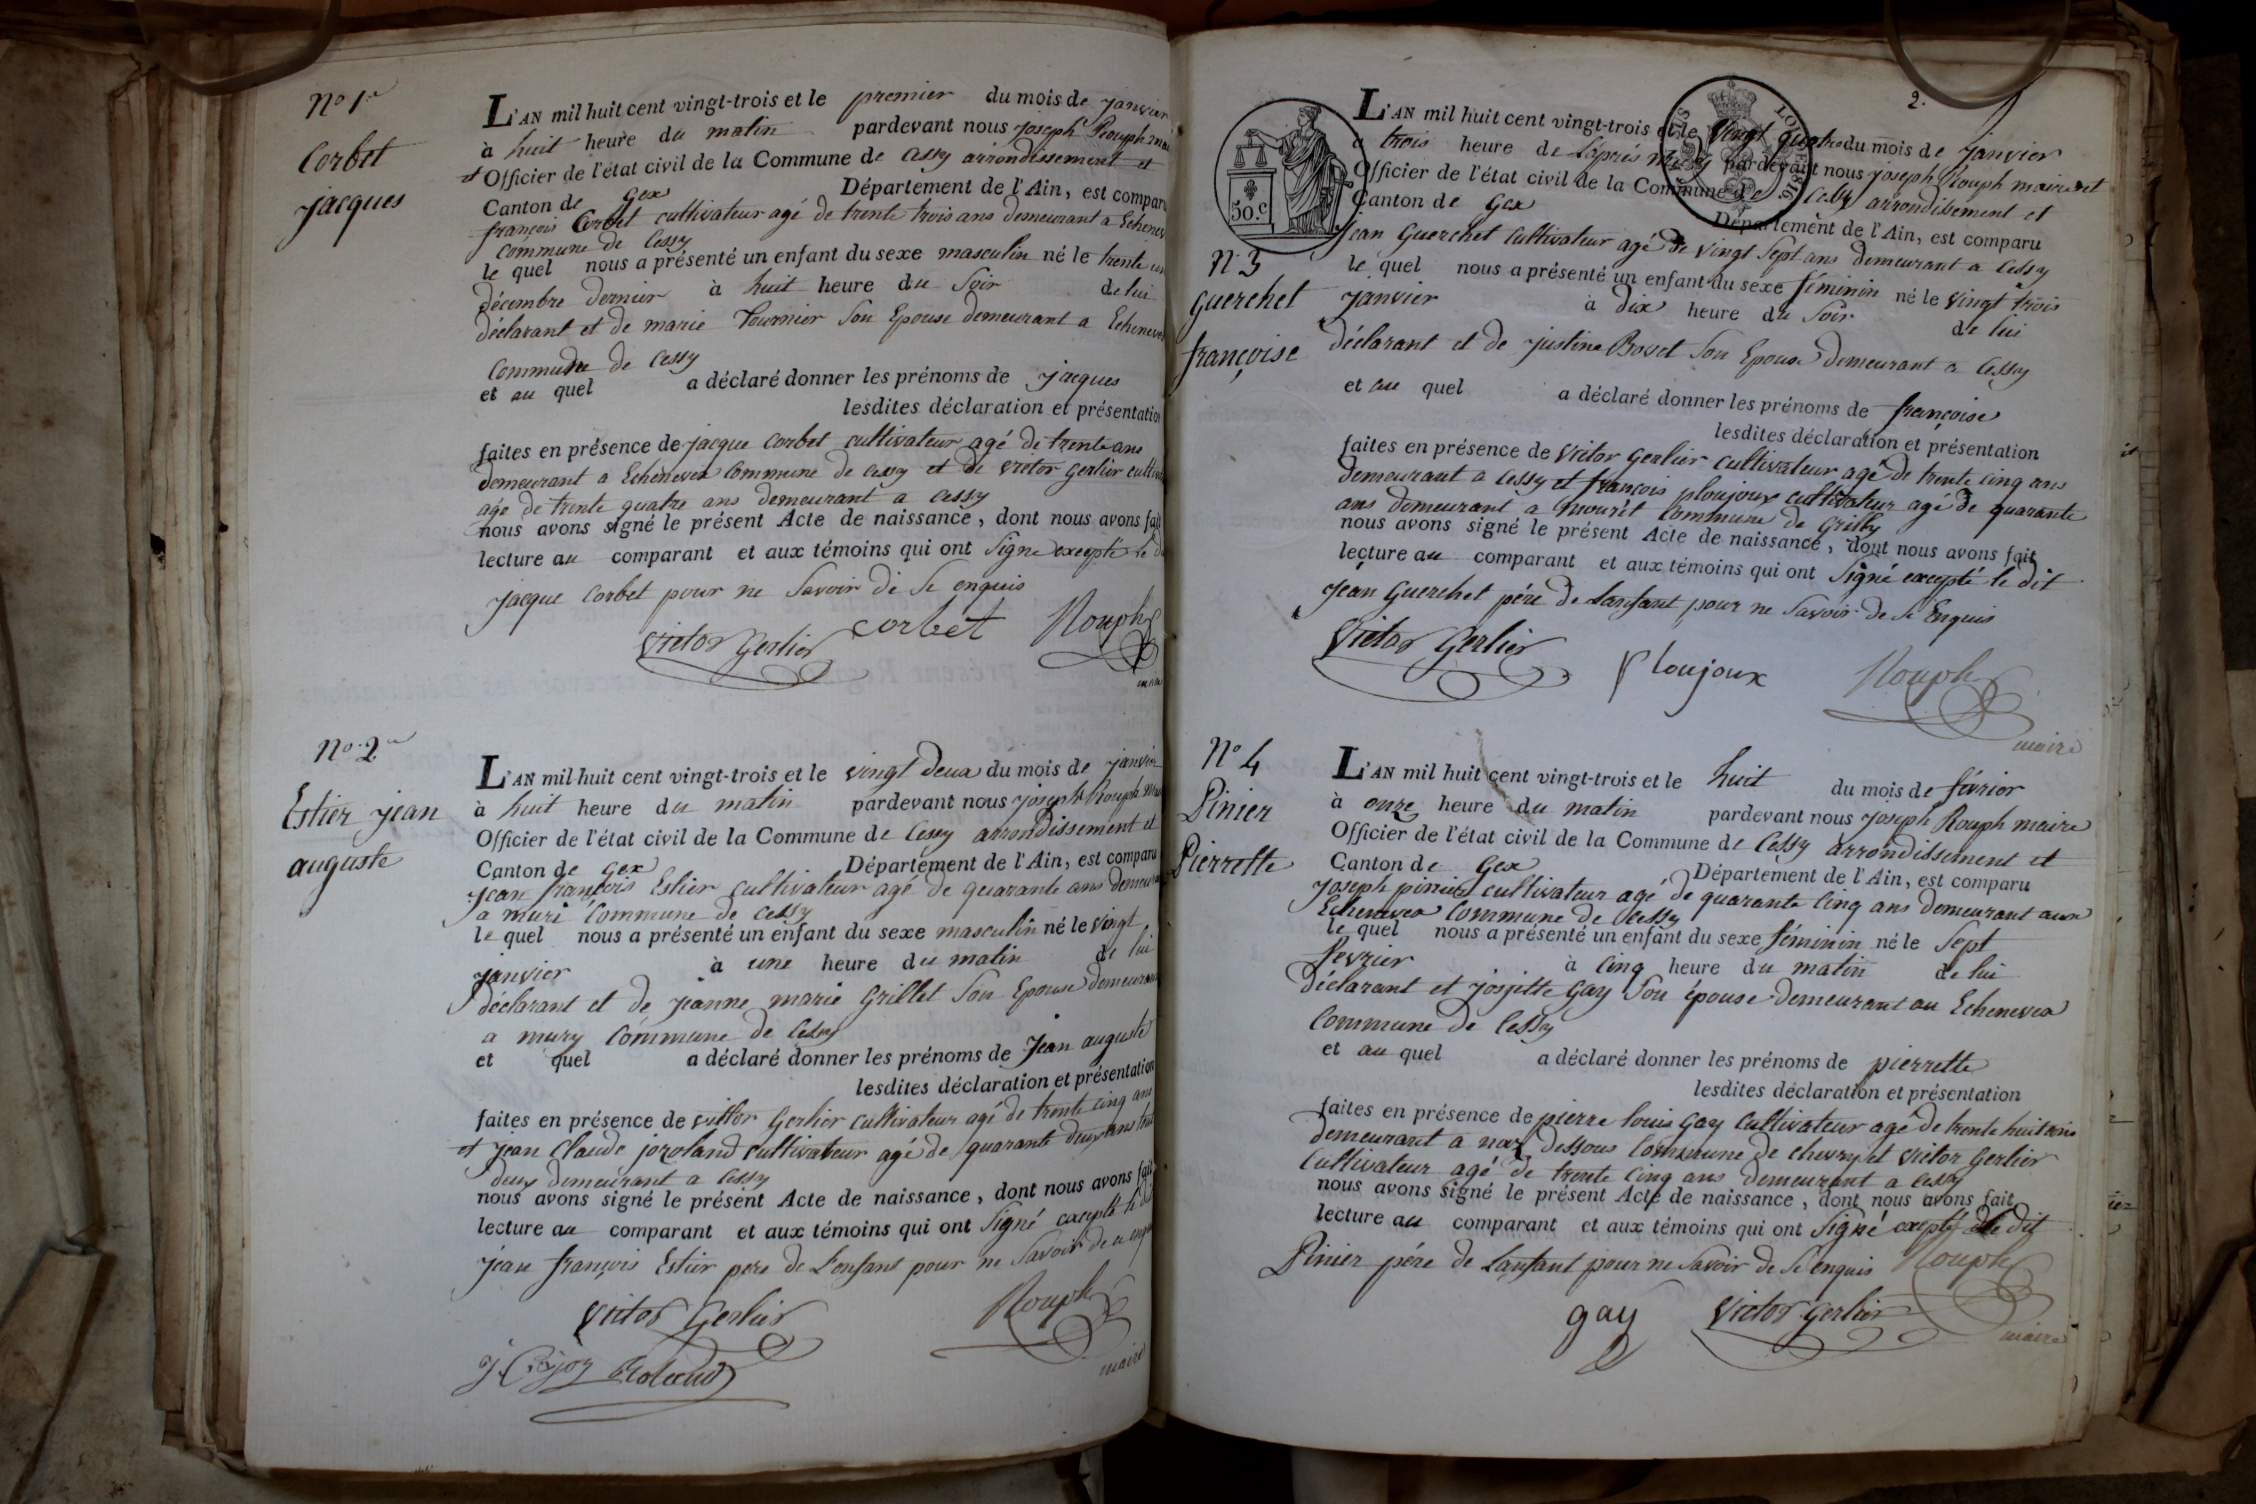 No 1er
Corbet
jacques
L'AN mil huit cent vingt-trois et le premier du mois de janvier
à huit heure du matin pardevant nous joseph Rouph mai
et Officier de l'état civil de la Commune de Cessy arrondissement et
Canton de Gex Département de l'Ain, est comparu
françois Corbet cultivateur agé de trente trois ans demeurant a Echenev
commune de Cessy
le quel nous a présenté un enfant du sexe masculin né le trente un
décembre dernier à huit heure du soir de lui
déclarant et de marie fournier son Epouse demeurant a Echenevex
commune de Cessy
et au quel a déclaré donner les prénoms de jacques
lesdites déclaration et présentation
faites en présence de jacque Corbet cultivateur agé de trente ans
demeurant a Echenevex Commune de Cessy et de victor Gerlier cultiva
agé de trente quatre ans demeurant a cessy
nous avons signé le présent Acte de naissance, dont nous avons fait
lecture au comparant et aux témoins qui ont signé excepté le d
jacque Corbet pour ne savoir de se enquis
victor Gerlier corbet Rouph
maire
No. 2
Estier jean
auguste
L'AN mil huit cent vingt-trois et le vingt deux du mois de janvier
à huit heure du matin pardevant nous joseph Rouph mai
Officier de l'état civil de la Commune de Cessy arrondissement et
Canton de Gex Département de l'Ain, est comparu
jean françois Estier cultivateur agé de quarante ans demeura
a muri commune de cessy
le quel nous a présenté un enfant du sexe masculin né le vingt
janvier à une heure du matin de lui
déclarant et de jeanne marie Grillet son Epouse demeurant
a mury commune de Cessy
et quel a déclaré donner les prénoms de Jean auguste
lesdites déclaration et présentation
faites en présence de victor Gerlier cultivateur agé de trente cinq ans
et jean Claude jozoland cultivateur agé de quarante deux ans tous
deux demeurant a Cessy
nous avons signé le présent Acte de naissance, dont nous avons fait
lecture au comparant et aux témoins qui ont signé excepté le dit
jean françois Estier pere de L'enfant pour ne savoir de ce enquis
victor Gerlier Rouph
maire
2.
50.c
LOI DE 1816
L'AN mil huit cent vingt-trois et le vingt quatre du mois de janvier
à trois heure de l'après midy pardevant nous joseph Rouph maire et
Officier de l'état civil de la Commune de Cessy arrondissement et
Canton de Gex Département de l'Ain, est comparu
jean Guerchet cultivateur agé de vingt sept ans demeurant a Cessy
N. 3
guerchet
françoise
le quel nous a présenté un enfant du sexe féminin né le vingt trois
janvier à dix heure du soir de lui
déclarant et de justine Bovet son Epouse demeurant a Cessy
et au quel a déclaré donner les prénoms de françoise
lesdites déclaration et présentation
faites en présence de victor Gerlier cultivateur agé de trente cinq ans
demeurant a cessy et françois ploujoux cultivateur agé de quarante
ans demeurant a mouret Commune de Grilly
nous avons signé le présent Acte de naissance, dont nous avons fait
lecture au comparant et aux témoins qui ont signé excepté le dit
jean Guerchet pére de Lanfant pour ne savoir de se Enquis
victor Gerlier ploujoux Rouph
maire
No 4
Pinier
Pierrette
L'AN mil huit cent vingt-trois et le huit du mois de févrior
à onze heure du matin pardevant nous joseph Rouph maire
Officier de l'état civil de la Commune de Cessy arrondissement et
Canton de Gex Département de l'Ain, est comparu
joseph pinier cultivateur agé de quarante cinq ans demeurant aux
Echenevex Commune de Cessy
le quel nous a présenté un enfant du sexe féminin né le sept
fevrier à cinq heure du matin de lui
déclarant et josjette Gay son épouse demeurant au Echenevex
Commune de Cessy
et au quel a déclaré donner les prénoms de pierrette
lesdites déclaration et présentation
faites en présence de pierre louis Gay cultivateur agé de trente huit ans
demeurant a naz dessous Commune de chevry et victor Gerlier
cultivateur agé de trente cinq ans demeurant a Cessy
nous avons signé le présent Acte de naissance, dont nous avons fait
lecture au comparant et aux témoins qui ont signé excepté le dit
Pinier pére de Lanfant pour ne savoir de se enquis Rouph
gay victor Gerlier maire